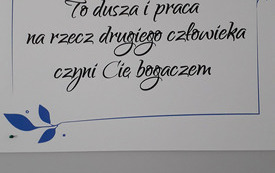 To dusza i praca
na rzecz drugiego człowieka
czyni Cię bogaczem